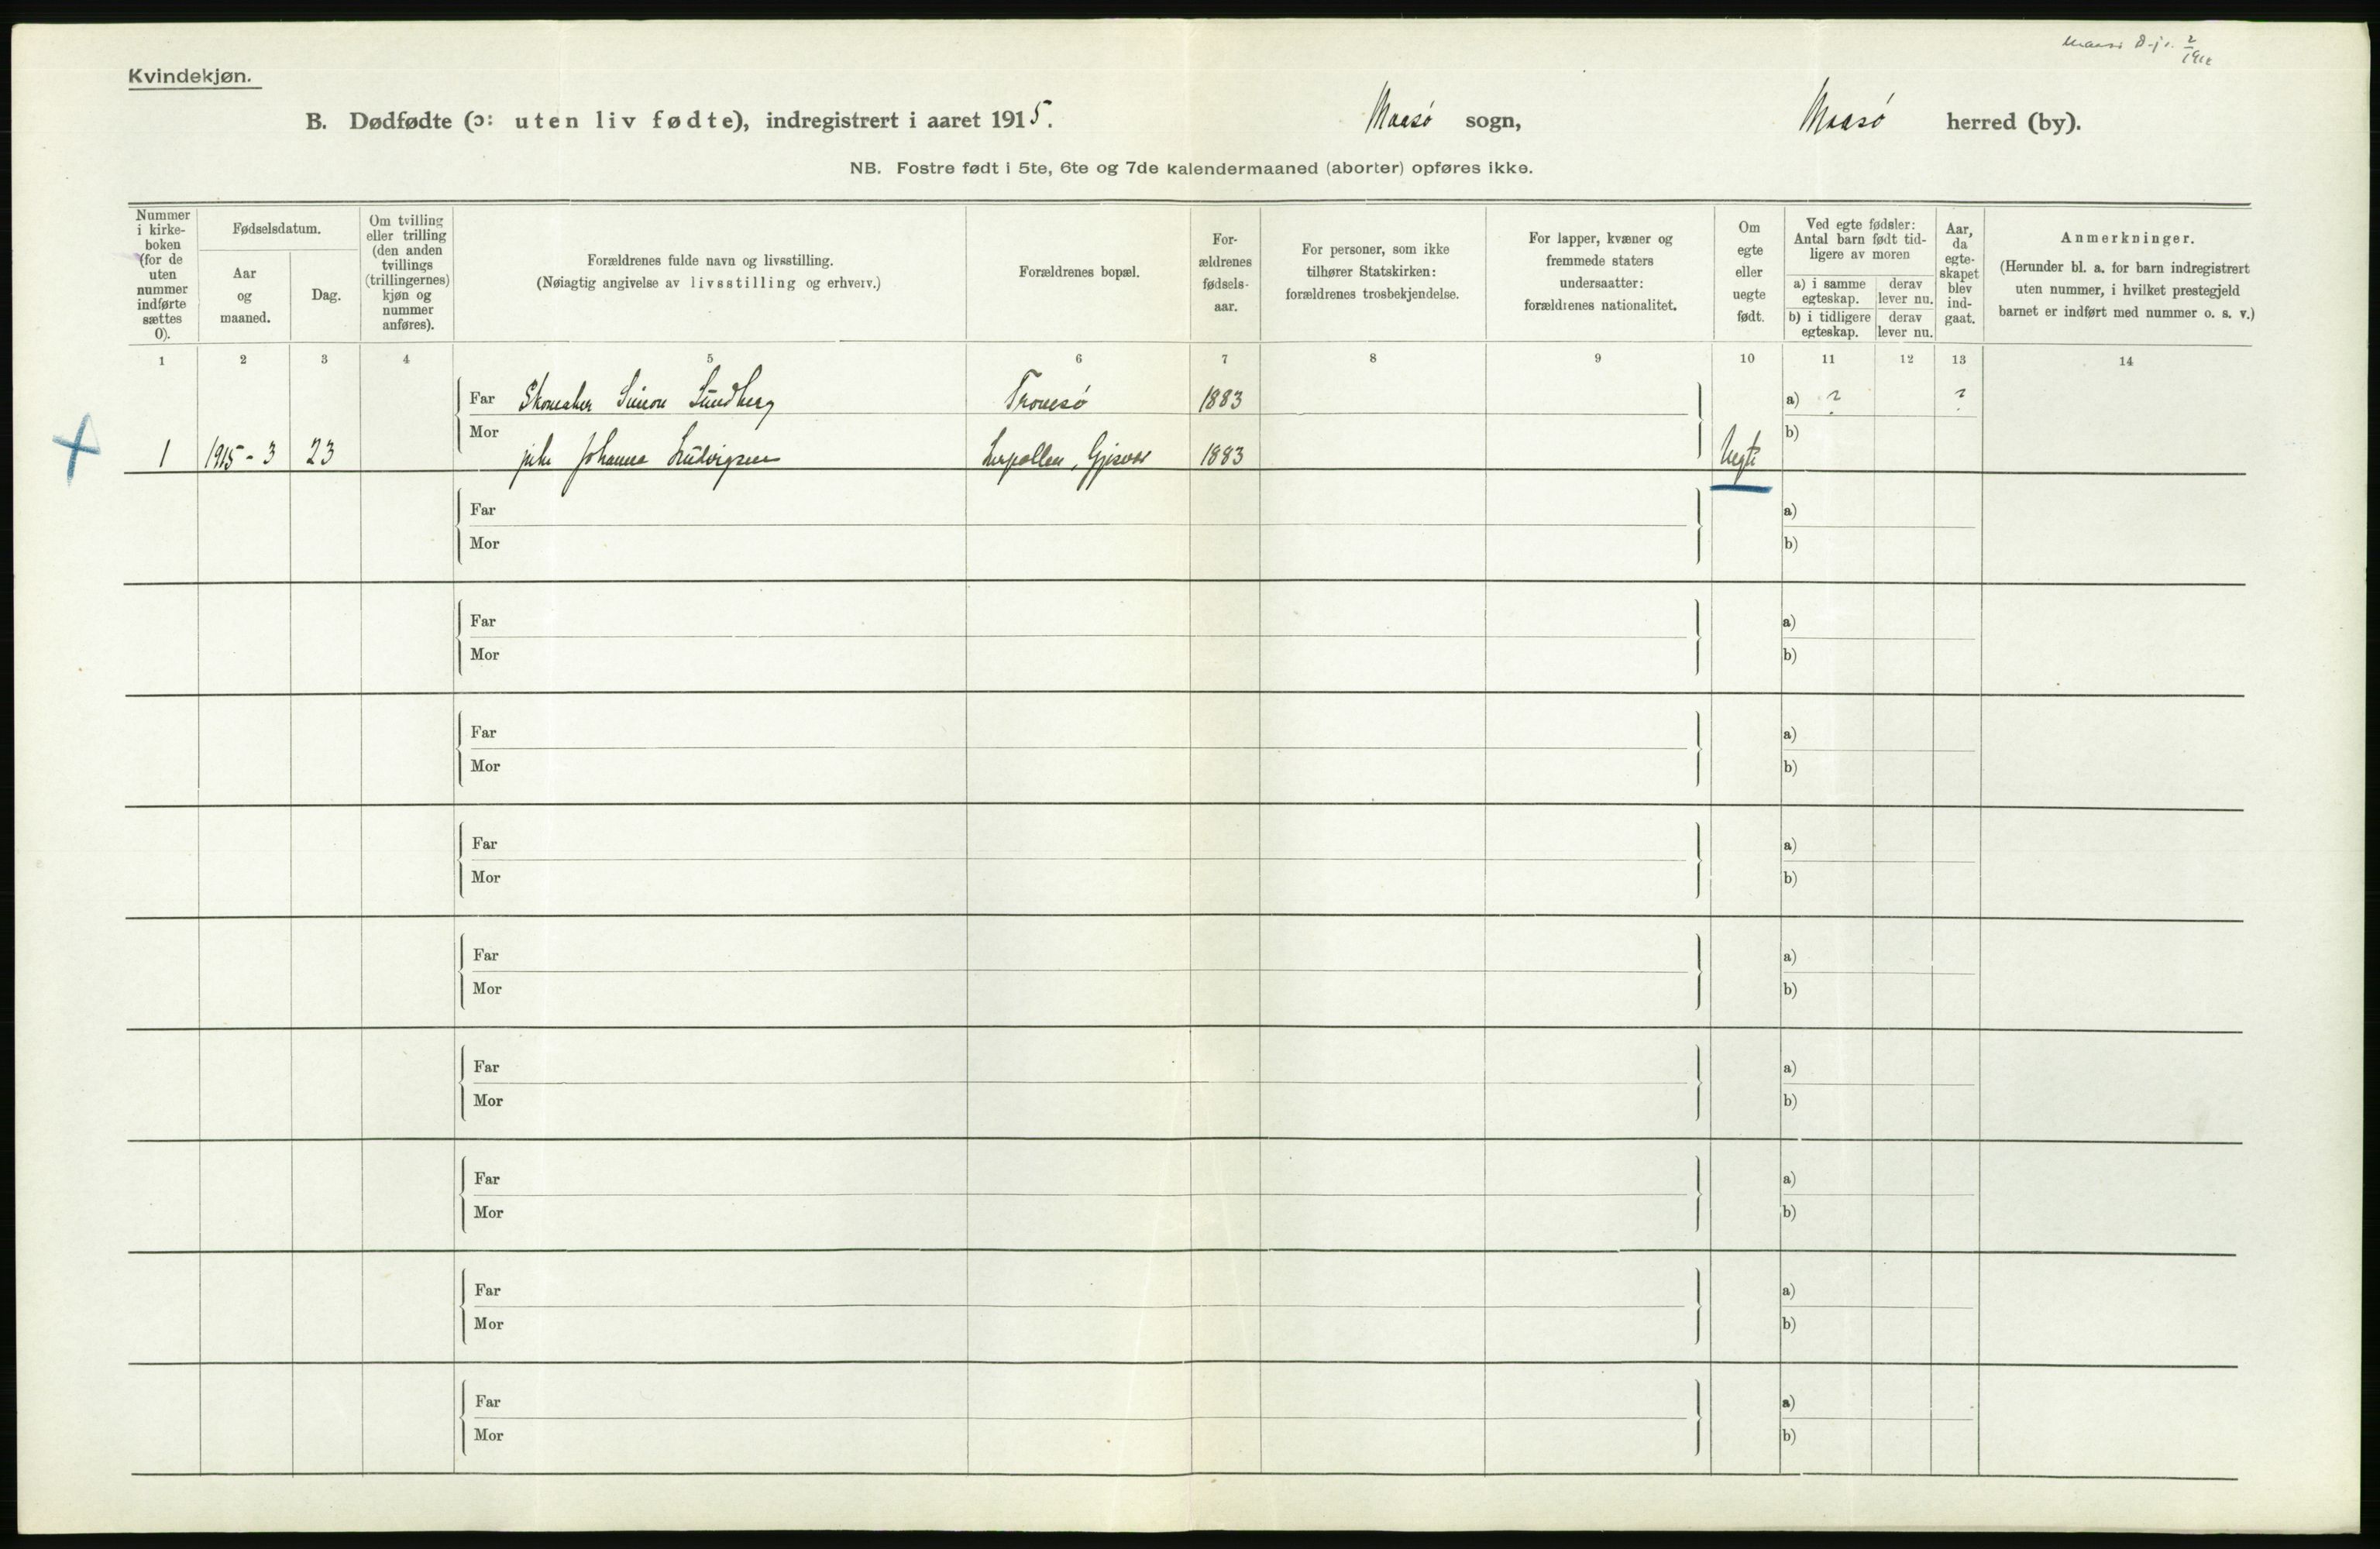 Kvindekjøn.
B. Dødfødte (ɔ: uten liv fødte), indregistrert i aaret 1915. Maasø sogn, Maasø herred (by).
NB. Fostre født i 5te, 6te og 7de kalendermaaned (aborter) opføres ikke.
Nummer i kirke-boken (for de uten nummer indførte sættes 0).
Fødselsdatum.
Aar og maaned.
Dag.
Om tvilling eller trilling (den anden tvillings (trillingernes) kjøn og nummer anføres).
Forældrenes fulde navn og livsstilling.
(Nøiagtig angivelse av livsstilling og erhverv.)
Forældrenes bopæl.
For-ældrenes fødsels-aar.
For personer, som ikke tilhører Statskirken: forældrenes trosbekjendelse.
For lapper, kvæner og fremmede staters undersaatter: forældrenes nationalitet.
Om egte eller uegte født.
Ved egte fødsler: Antal barn født tid-ligere av moren
a) i samme egteskap.
derav lever nu.
b) i tidligere egteskap.
derav lever nu.
Aar, da egte-skapet blev ind-gaat.
Anmerkninger.
(Herunder bl. a. for barn indregistrert uten nummer, i hvilket prestegjeld barnet er indført med nummer o. s. v.)
1 2 3 4 5 6 7 8 9 10 11 12 13 14
Far Skomaker Simon Sundberg Tromsø 1883 a) ? ?
1 1915-3 23 Mor pike Johanna Ludvigsen Gjesvær 1883 Uegte b)
Far a)
Mor b)
Far a)
Mor b)
Far a)
Mor b)
Far a)
Mor b)
Far a)
Mor b)
Far a)
Mor b)
Far a)
Mor b)
Far a)
Mor b)
Far a)
Mor b)